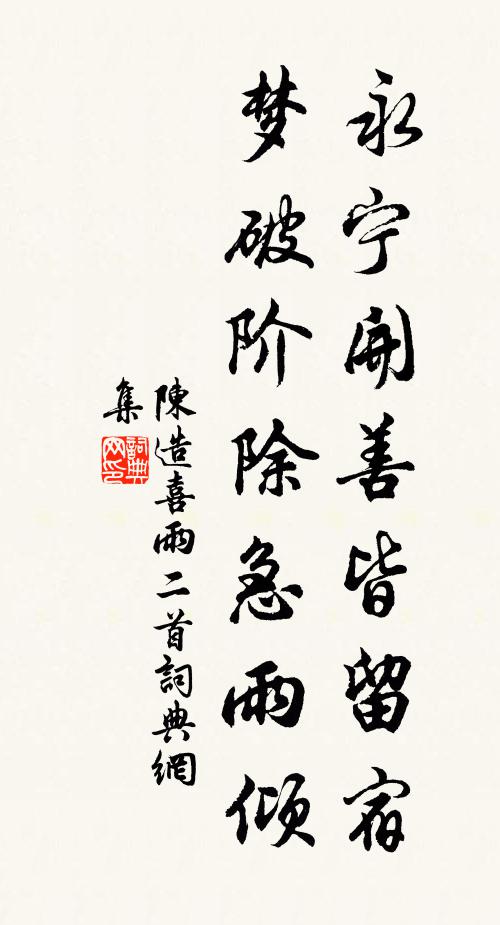 永宁開善皆留宿
梦破阶除急雨倾
陳造喜雨二首詞典網
集
詞典
网印